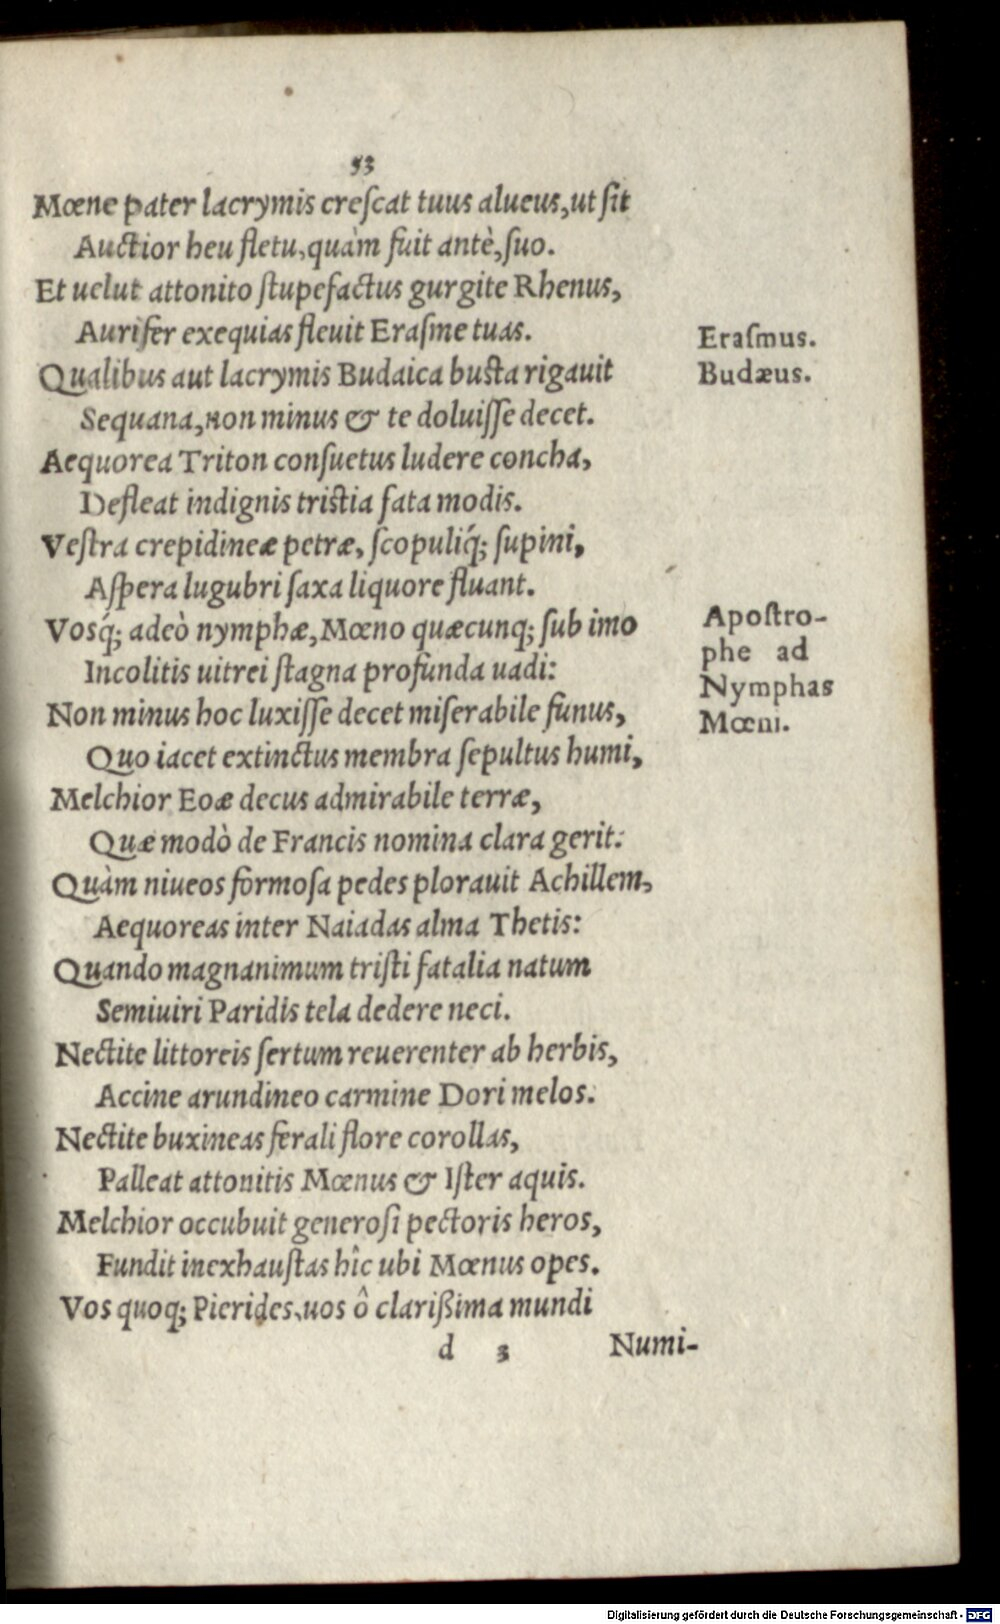 53
Mœne pater lacrymis creſcat tuus alueus, ut ſit
Auctior heu fletu, quàm fuit antè, ſuo.
Et uelut attonito ſtupefactus gurgite Rhenus,
Aurifer exequias fleuit Eraſme tuas.
Eraſmus.
Qualibus aut lacrymis Budaica buſta rigauit
Budæus.
Sequana, non minus & te doluiſſe decet.
Aequorea Triton conſuetus ludere concha,
Defleat indignis triſtia fata modis.
Veſtra crepidineæ petræ, ſcopuliq́; ſupini,
Aſpera lugubri ſaxa liquore fluant.
Vosq́; adeò nymphæ, Mœno quæcunq; ſub imo
Incolitis uitrei ſtagna profunda uadi:
Apoſtro-
phe ad
Nymphas
Mœni.
Non minus hoc luxiſſe decet miſerabile funus,
Quo iacet extinctus membra ſepultus humi,
Melchior Eoæ decus admirabile terræ,
Quæ modò de Francis nomina clara gerit:
Quàm niueos formoſa pedes plorauit Achillem,
Aequoreas inter Naiadas alma Thetis:
Quando magnanimum triſti fatalia natum
Semiuiri Paridis tela dedere neci.
Nectite littoreis ſertum reuerenter ab herbis,
Accine arundineo carmine Dori melos.
Nectite buxineas ferali flore corollas,
Palleat attonitis Mœnus & Iſter aquis.
Melchior occubuit generoſi pectoris heros,
Fundit inexhauſtas hîc ubi Mœnus opes.
Vos quoq; Pierides, uos ô clarißima mundi
d 3
Numi-
Digitalisierung gefördert durch die Deutsche Forschungsgemeinschaft - DFG